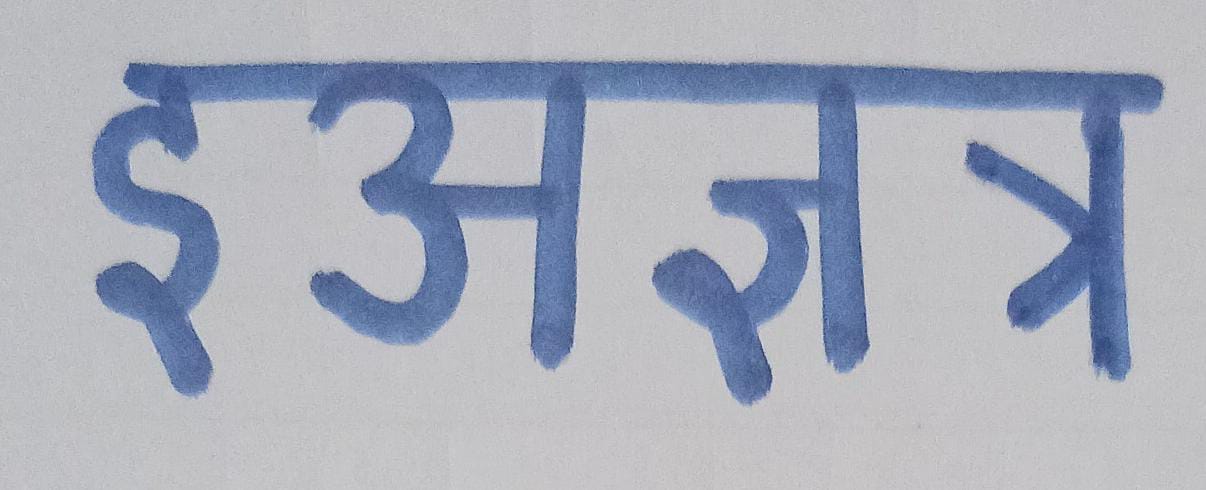 इअज्ञत्र